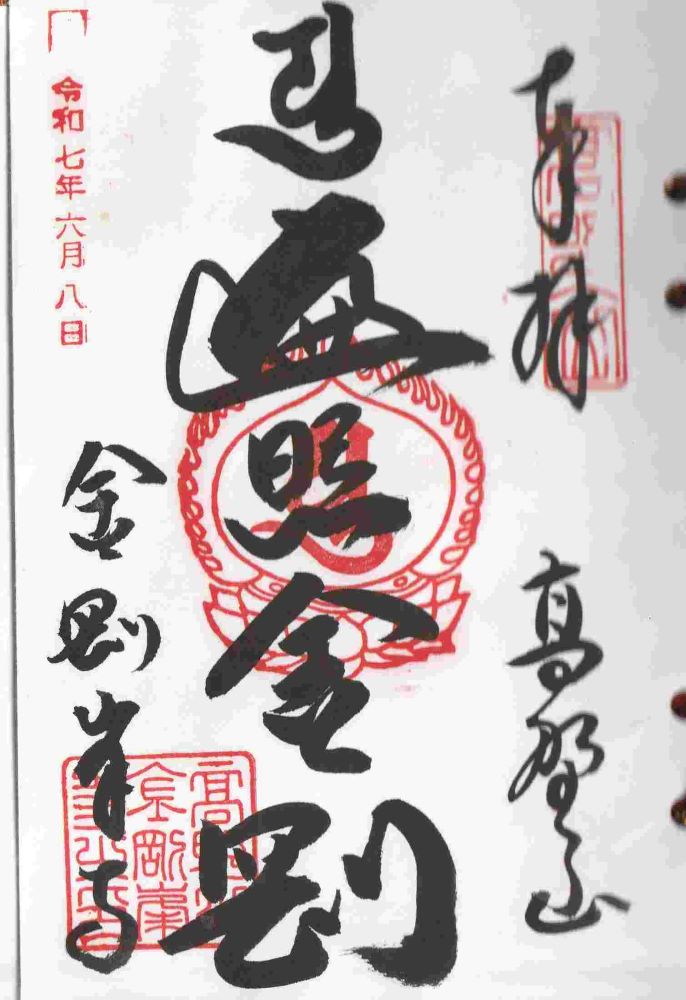 奉拝 高野山
遍照金剛
金剛峯寺
令和七年六月八日
高野山
金剛峯